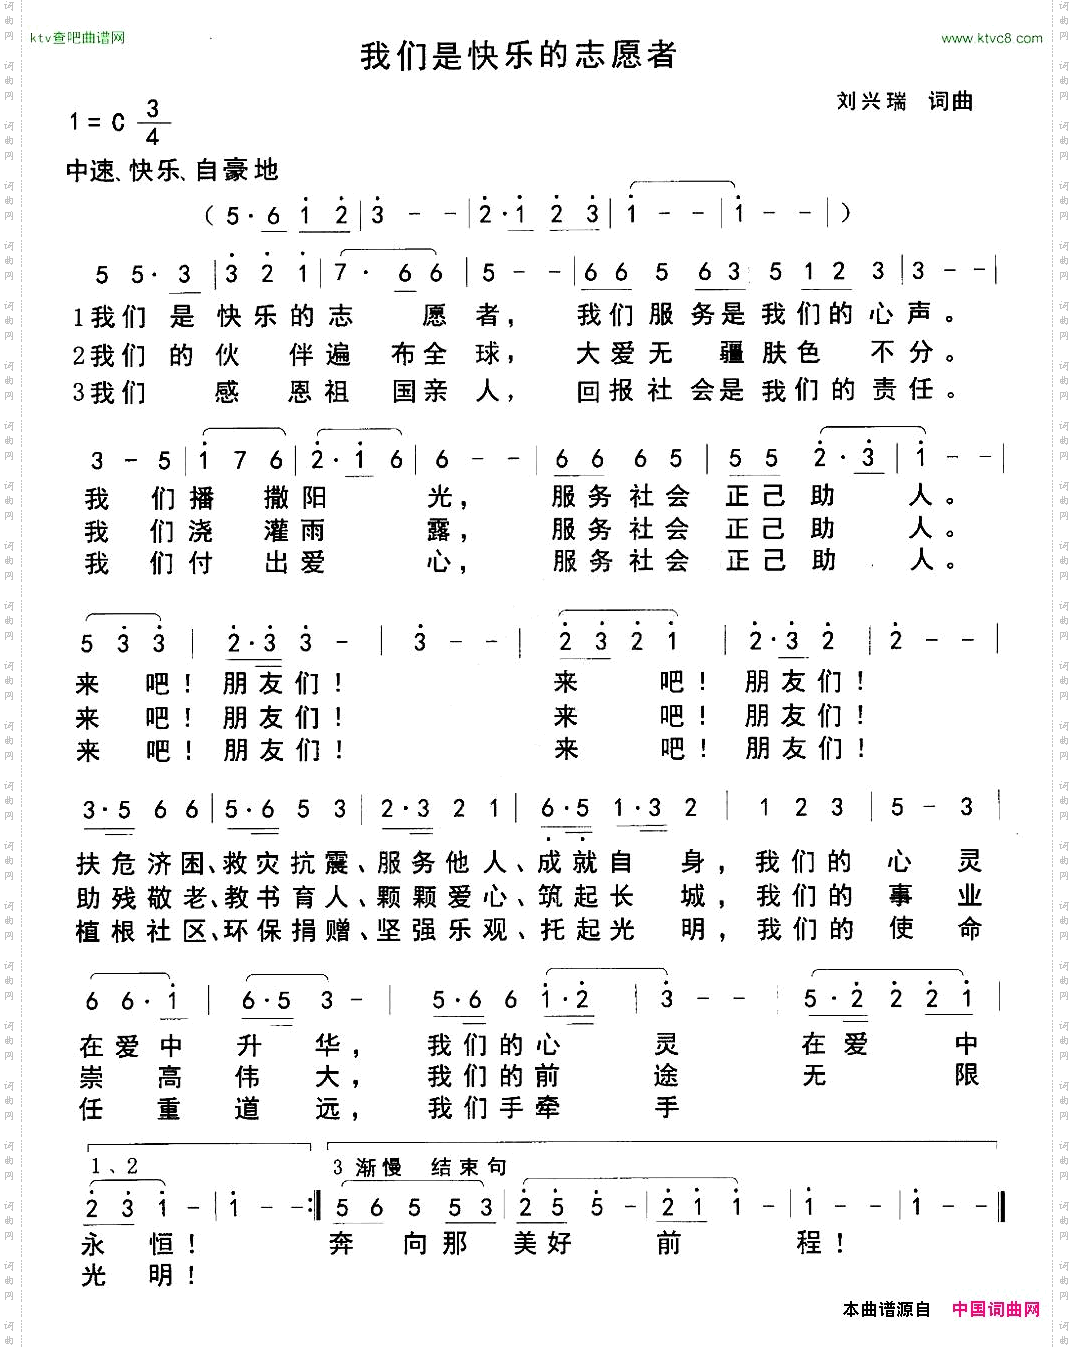 ktv查吧曲谱网
www.ktvc8.com
我们是快乐的志愿者
刘兴瑞 词曲
1=C 3/4
中速、快乐、自豪地
（5·6 1 2|3 - -|2·1 2 3|1 - -|1 - -|）
5 5· 3|3 2 1|7· 6 6|5 - -|6 6 5 6 3 5 1 2 3|3 - -|
1我们是快乐的志愿者，我们服务是我们的心声。
2我们的伙伴遍布全球，大爱无疆肤色不分。
3我们感恩祖国亲人，回报社会是我们的责任。
3 - 5|1 7 6|2·1 6|6 - -|6 6 6 5|5 5 2·3|1 - -|
我们播撒阳光，服务社会正己助人。
我们浇灌雨露，服务社会正己助人。
我们付出爱心，服务社会正己助人。
5 3 3|2·3 3 -|3 - -|2 3 2 1|2·3 2|2 - -|
来吧！朋友们！来吧！朋友们！
来吧！朋友们！来吧！朋友们！
来吧！朋友们！来吧！朋友们！
3·5 6 6|5·6 5 3|2·3 2 1|6·5 1·3 2|1 2 3|5 - 3|
扶危济困、救灾抗震、服务他人、成就自身，我们的心灵
助残敬老、教书育人、颗颗爱心、筑起长城，我们的事业
植根社区、环保捐赠、坚强乐观、托起光明，我们的使命
6 6· 1|6·5 3 -|5·6 6 1·2|3 - -|5·2 2 2 1|
在爱中升华，我们的心灵在爱中
崇高伟大，我们的前途无限
任重道远，我们手牵手
1、2 3 渐慢 结束句
2 3 1|1 - -:‖5 6 5 5 3|2 5 5 -|2 1 1 -|1 - -|1 - -‖
永恒！奔向那美好前程！
光明！
本曲谱源自 中国词曲网